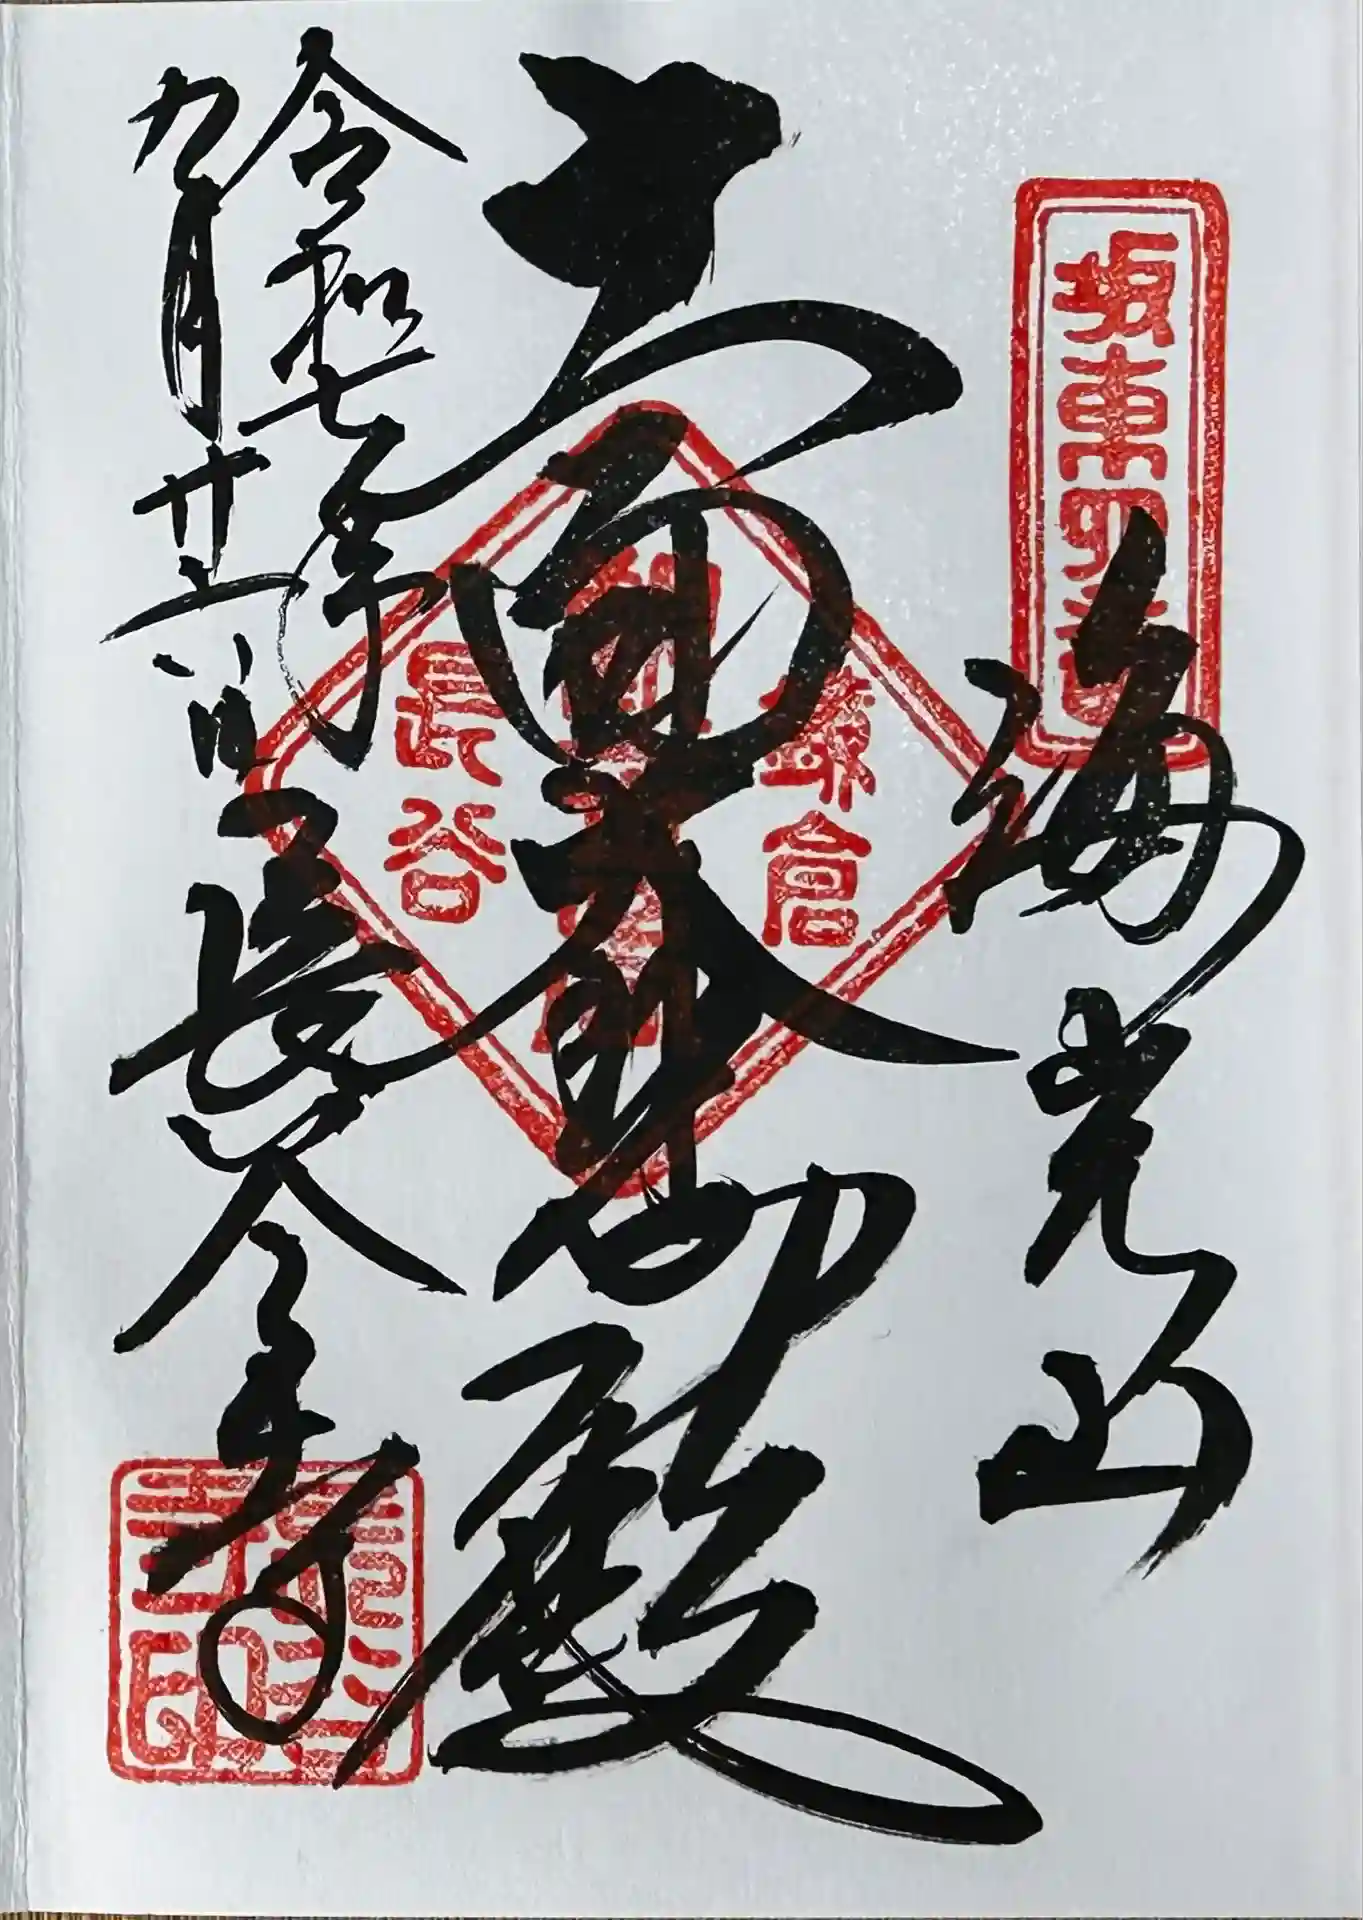 坂東四番
海光山
十一面大悲殿
鎌倉
長谷
令和七年
九月廿六日
長谷寺
長谷寺印